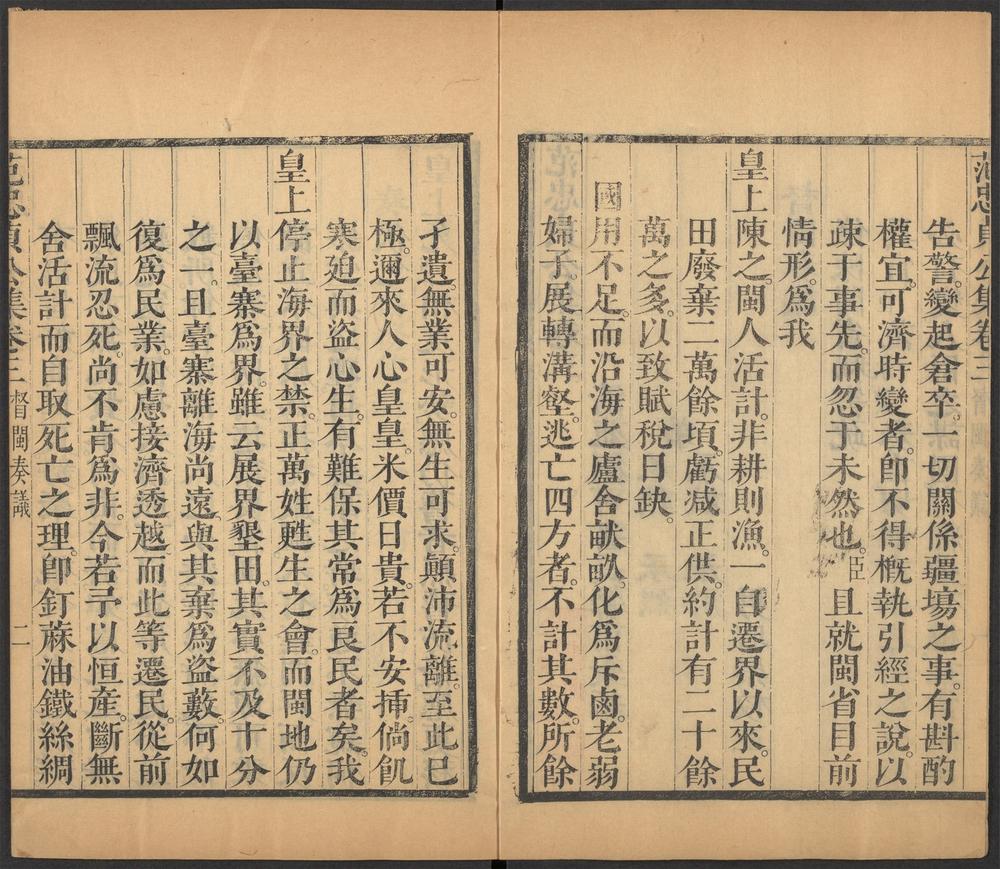 范忠貞公集卷三
告警變起倉卒一切關係疆場之事有斟酌
權宜可濟時變者卽不得槪執引經之說以
疎于事先而忽于未然也臣且就閩省目前
情形爲我
皇上陳之閩人活計非耕則漁一自遷界以來民
田廢棄二萬餘頃虧减正供約計有二十餘
萬之多以致賦稅日缺
國用不足而沿海之廬舍畎畝化爲斥鹵老弱
婦子展轉溝壑逃亡四方者不計其數所餘
孑遺無業可安無生可求顛沛流離至此已
極邇來人心皇皇米價日貴若不安揷倘飢
寒廹而盜心生有難保其常爲良民者矣我
皇上停止海界之禁正萬姓甦生之會而閩地仍
以臺寨爲界雖云展界墾田其實不及十分
之一且臺寨離海尚遠與其棄爲盜藪何如
復爲民業如慮接濟透越而此等遷民從前
飄流忍死尚不肯爲非今若予以恒產斷無
舍活計而自取死亡之理卽釘蔴油鐵絲綢
范忠貞公集卷三 督閩奏議 二